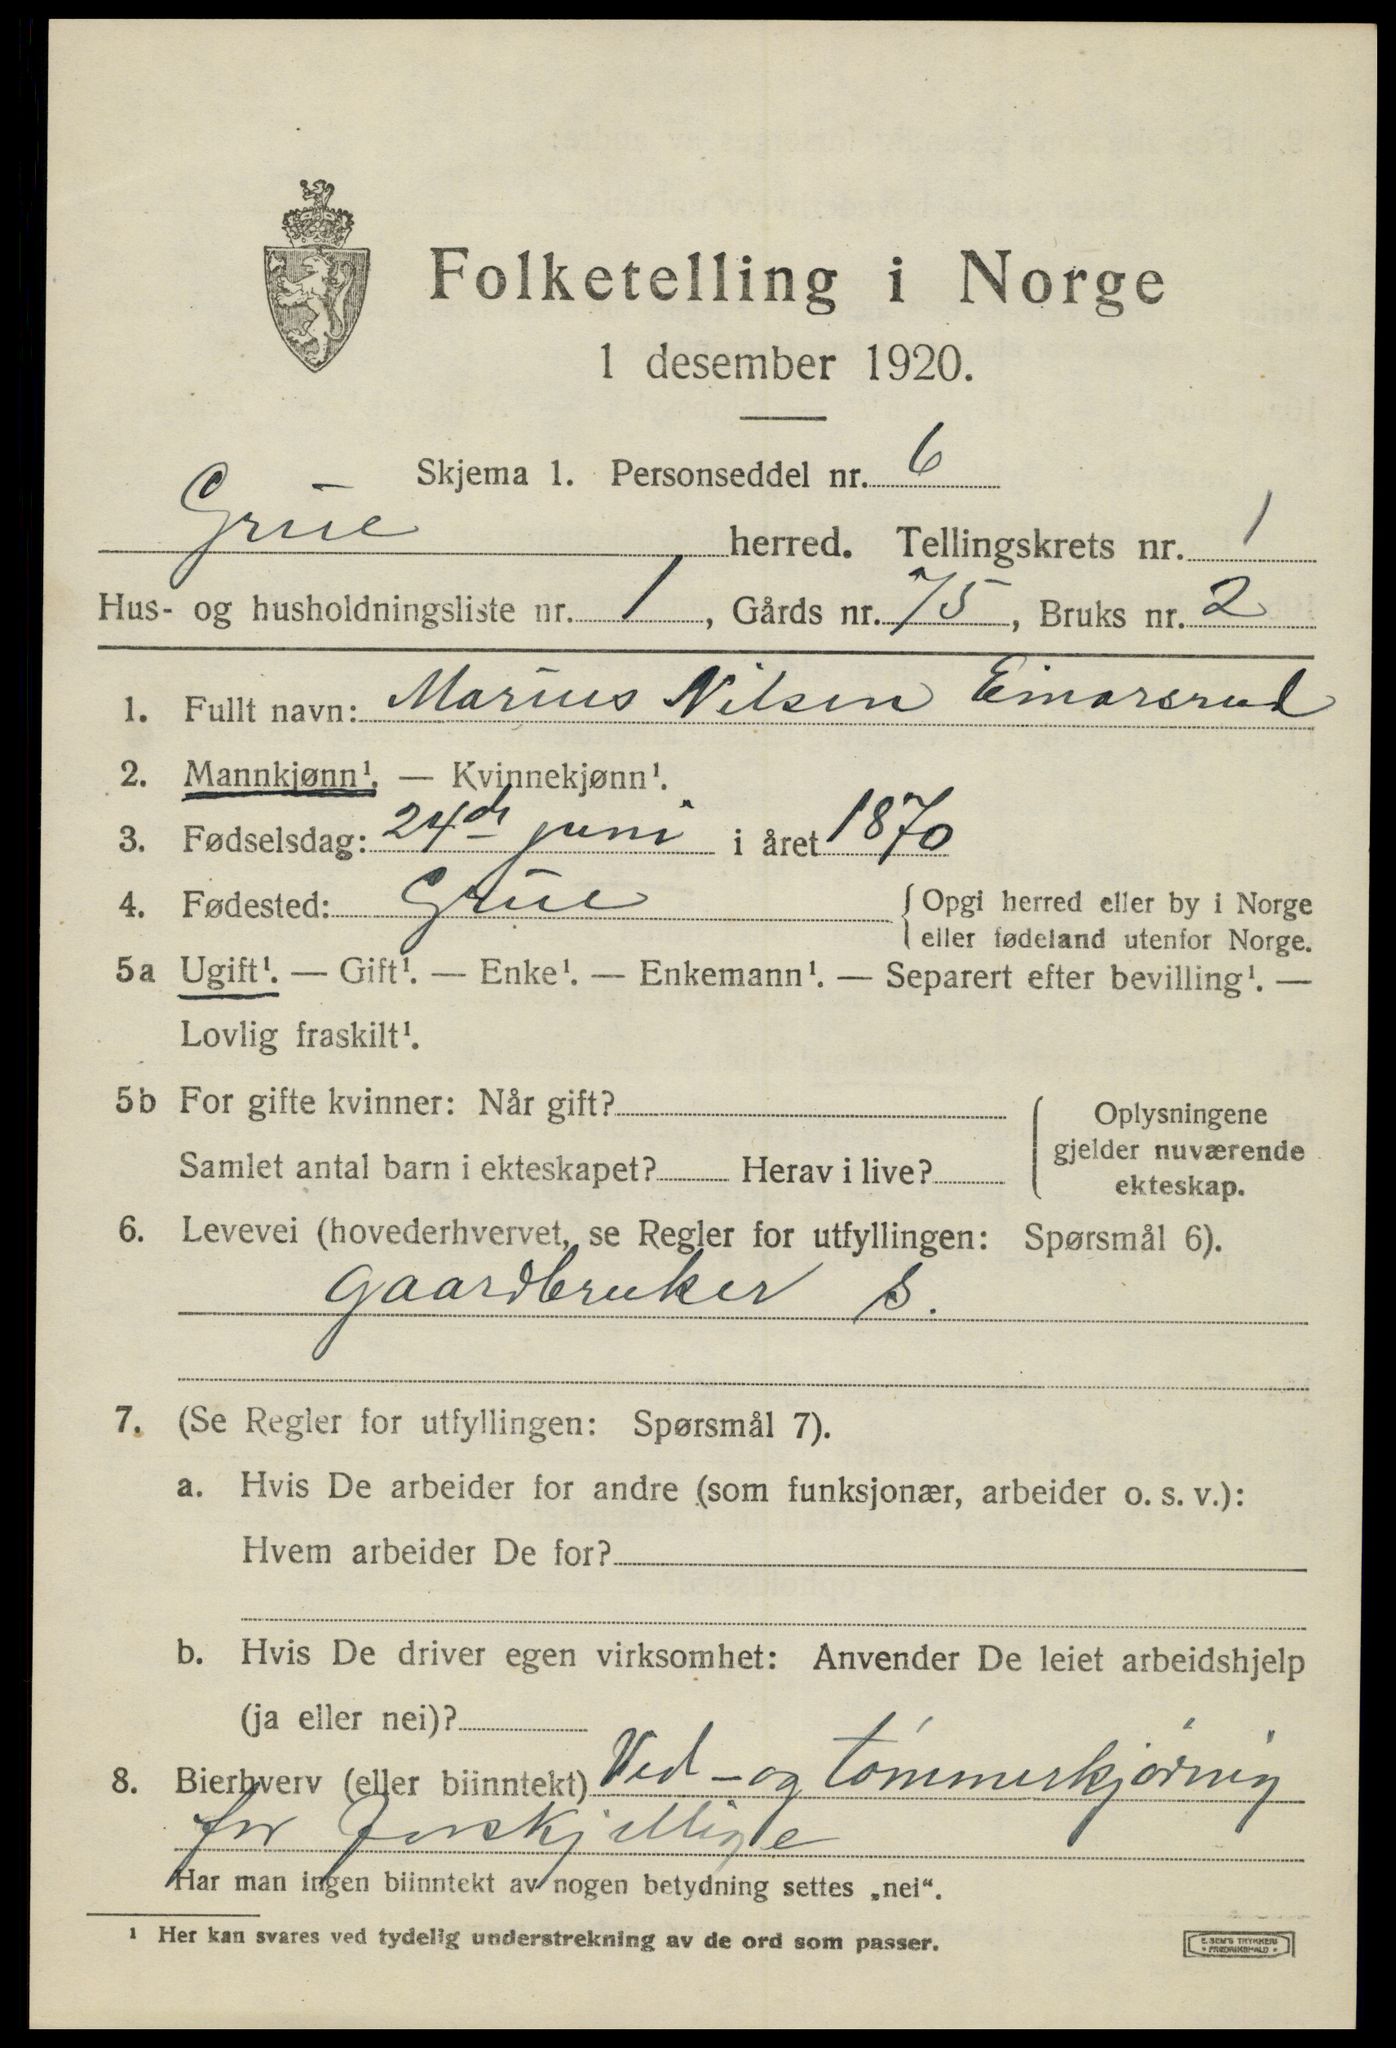 Folketelling i Norge
1 desember 1920.
Skjema 1. Personseddel nr. 6
Grue herred. Tellingskrets nr. 1
Hus- og husholdningsliste nr. 1, Gårds nr. 75, Bruks nr. 2
1. Fullt navn: Marius Nilsen Einarsrud
2. Mannkjønn¹. — Kvinnekjønn¹.
3. Fødselsdag: 24de juni i året 1870
4. Fødested: Grue { Opgi herred eller by i Norge
eller fødeland utenfor Norge.
5a Ugift¹. — Gift¹. — Enke¹. — Enkemann¹. — Separert efter bevilling¹. —
Lovlig fraskilt¹.
5b For gifte kvinner: Når gift?
Samlet antal barn i ekteskapet? Herav i live?
{ Oplysningene
gjelder nuværende
ekteskap.
6. Levevei (hovederhvervet, se Regler for utfyllingen: Spørsmål 6).
Gaardbruker S.
7. (Se Regler for utfyllingen: Spørsmål 7).
a. Hvis De arbeider for andre (som funksjonær, arbeider o. s. v.):
Hvem arbeider De for?
b. Hvis De driver egen virksomhet: Anvender De leiet arbeidshjelp
(ja eller nei)?
8. Bierhverv (eller biinntekt) Ved - og tømmerkjøring
for forskjellige
Har man ingen biinntekt av nogen betydning settes „nei“.
¹ Her kan svares ved tydelig understrekning av de ord som passer.
E. SEM'S TRYKKERI
• FREDRIKSHALD •